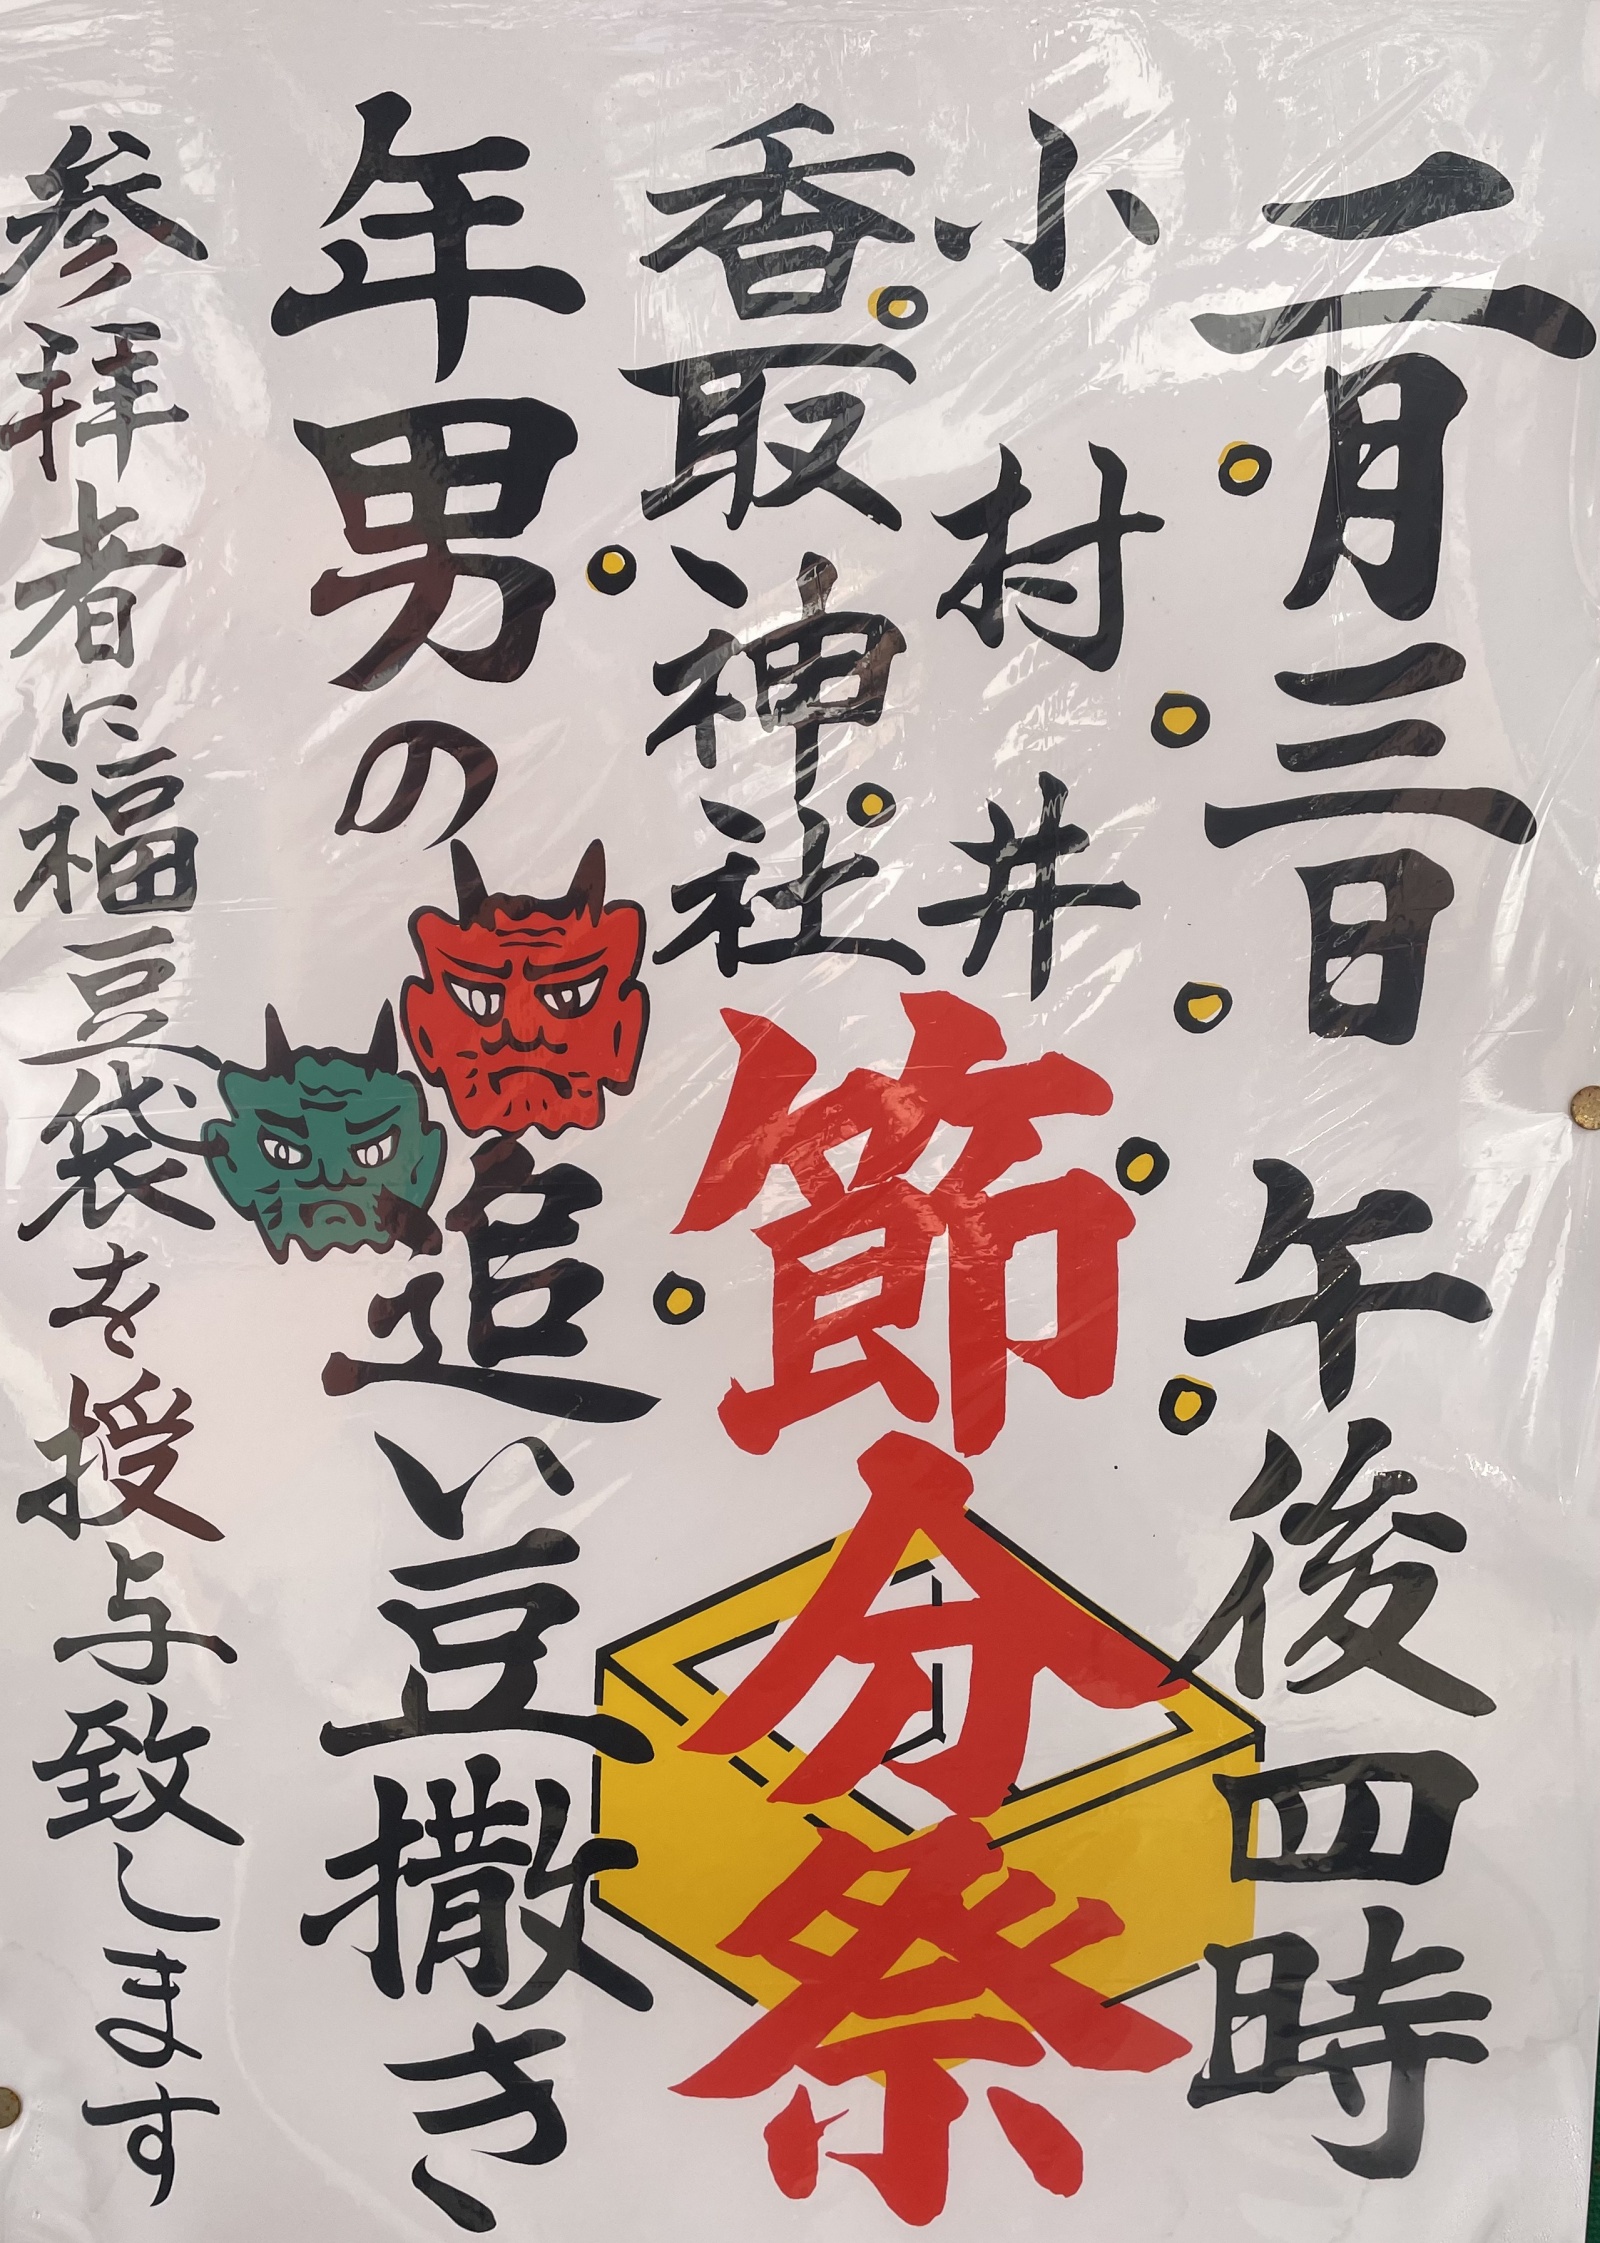 二月三日 午後四時
小村井
香取神社 節分祭
年男の 追い豆撒き
参拝者に福豆袋を授与致します